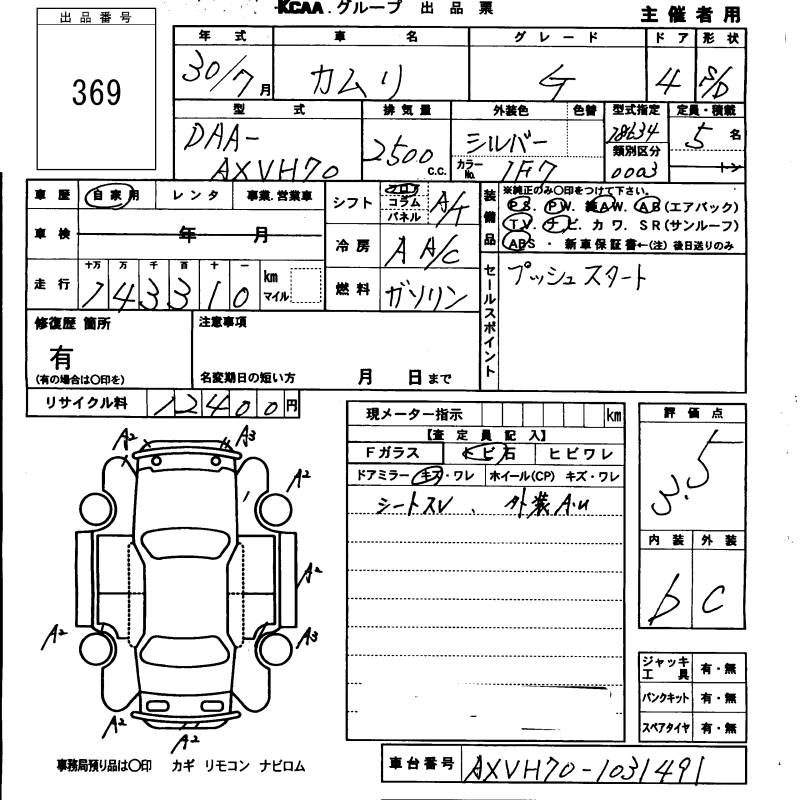 KCAA グループ 出品票
主催者用
出品番号
369
年式 車名 グレード ドア 形状
30/7月 カムリ G 4 S/D
型式 排気量 外装色 色替 型式指定 定員・積載
DAA-AXVH70 2500 c.c. シルバー 18634 5名
カラーNo. 1F7 類別区分 0003 トン
車歴 自家用 レンタ 事業.営業車
シフト フロア コラム パネル A/T
車検 年 月
冷房 A A/C
走行 十万 万 千 百 十 一
143310 km マイル
燃料 ガソリン
装備品 ※純正のみ〇印をつけて下さい。
PS. PW. 純AW. AB(エアバック)
TV. ナビ. カワ. SR(サンルーフ)
ABS ・ 新車保証書←(注) 後日送りのみ
セールスポイント プッシュスタート
修復歴 箇所
有
(有の場合は〇印を)
注意事項
名変期日の短い方 月 日まで
リサイクル料 12400円
現メーター指示 km
【査定員記入】
Fガラス トビ石 ヒビワレ
ドアミラー キズ・ワレ ホイール(CP) キズ・ワレ
シートスレ、外装A.u
評価点
3.5
内装 外装
b C
A2 A3
A2
A2
A2 A3
A2 A2
ジャッキ工具 有・無
パンクキット 有・無
スペアタイヤ 有・無
事務局預り品は〇印 カギ リモコン ナビロム
車台番号 AXVH70-1031491